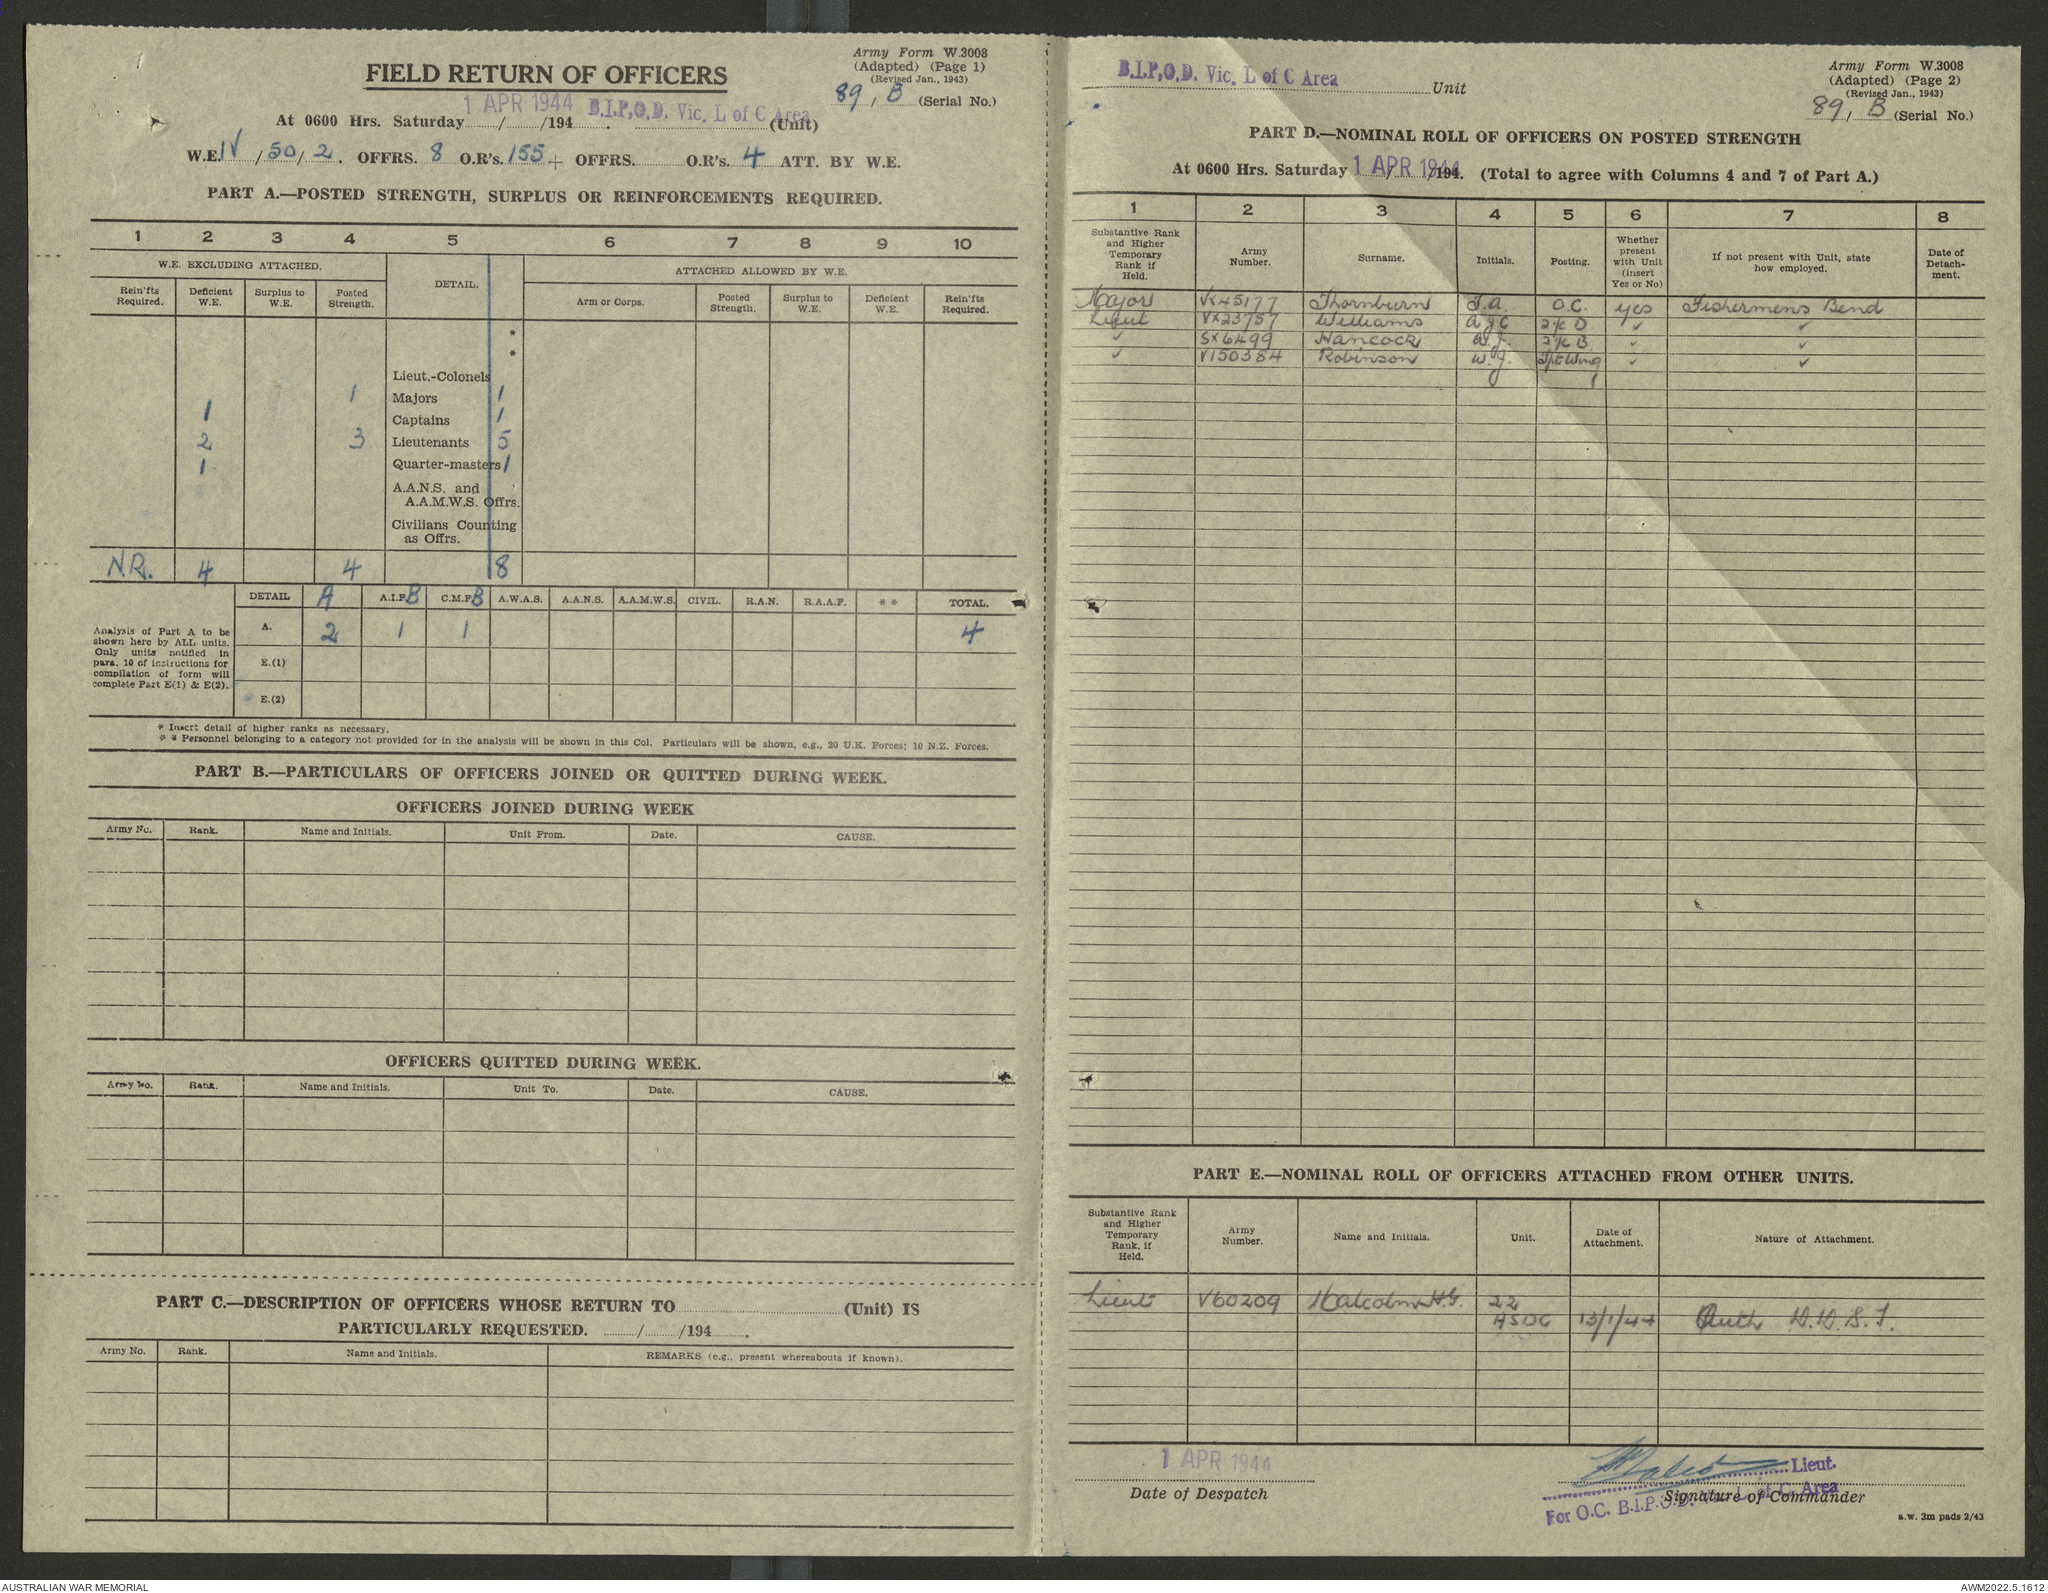 Army Form W.3008
(Adapted) (Page 1)
(Revised Jan., 1943)
89, B (Serial No.)
FIELD RETURN OF OFFICERS
1 APR 1944 B.I.P.O.D. Vic. L of C Area
At 0600 Hrs. Saturday / /194 . (Unit)
W.E. IV / 50 / 2. OFFRS. 8 O.R's. 155 + OFFRS. O.R's. 4 ATT. BY W.E.
PART A.—POSTED STRENGTH, SURPLUS OR REINFORCEMENTS REQUIRED.
1 2 3 4 5 6 7 8 9 10
W.E. EXCLUDING ATTACHED. DETAIL. ATTACHED ALLOWED BY W.E.
Rein'fts Required. Deficient W.E. Surplus to W.E. Posted Strength. Arm or Corps. Posted Strength. Surplus to W.E. Deficient W.E. Rein'fts Required.
*
*
Lieut.-Colonels
1 Majors 1
1 Captains 1
2 3 Lieutenants 5
1 Quarter-masters 1
A.A.N.S. and
A.A.M.W.S. Offrs.
Civilians Counting
as Offrs.
N.R. 4 4 8
DETAIL A A.I.F. B C.M.F. B A.W.A.S. A.A.N.S. A.A.M.W.S. CIVIL. R.A.N. R.A.A.F. * * TOTAL.
A. 2 1 1 4
E.(1)
E.(2)
Analysis of Part A to be
shown here by ALL units.
Only units notified in
para. 10 of instructions for
compilation of form will
complete Part E(1) & E(2).
* Insert detail of higher ranks as necessary.
* * Personnel belonging to a category not provided for in the analysis will be shown in this Col. Particulars will be shown, e.g., 20 U.K. Forces; 10 N.Z. Forces.
PART B.—PARTICULARS OF OFFICERS JOINED OR QUITTED DURING WEEK.
OFFICERS JOINED DURING WEEK
Army No. Rank. Name and Initials. Unit From. Date. CAUSE.
OFFICERS QUITTED DURING WEEK.
Army No. Rank. Name and Initials. Unit To. Date. CAUSE.
PART C.—DESCRIPTION OF OFFICERS WHOSE RETURN TO (Unit) IS
PARTICULARLY REQUESTED. / /194 .
Army No. Rank. Name and Initials. REMARKS (e.g., present whereabouts if known).
B.I.P.O.D. Vic. L of C Area Unit
Army Form W.3008
(Adapted) (Page 2)
(Revised Jan., 1943)
89, B (Serial No.)
PART D.—NOMINAL ROLL OF OFFICERS ON POSTED STRENGTH
At 0600 Hrs. Saturday 1 APR 1944 /194. (Total to agree with Columns 4 and 7 of Part A.)
1 2 3 4 5 6 7 8
Substantive Rank and Higher Temporary Rank if Held. Army Number. Surname. Initials. Posting. Whether present with Unit (insert Yes or No) If not present with Unit, state how employed. Date of Detach-ment.
Major VX45177 Thornburn T.A. O.C. yes Fishermens Bend
Lieut VX23757 Williams A J C 2 i/c D ✓ ✓
✓ SX6499 Hancock A.J. 2 i/c B ✓ ✓
✓ V150384 Robinson W.J. Wing ✓ ✓
PART E.—NOMINAL ROLL OF OFFICERS ATTACHED FROM OTHER UNITS.
Substantive Rank and Higher Temporary Rank, if Held. Army Number. Name and Initials. Unit. Date of Attachment. Nature of Attachment.
Lieut V60209 Malcolm H.G. 22
ASDC 13/1/44 Auth D.D.S.T.
1 APR 1944
Date of Despatch
Lieut.
Signature of Commander
For O.C. B.I.P.O.D. Vic. L of C. Area
a.w. 3m pads 2/43
AUSTRALIAN WAR MEMORIAL
AWM2022.5.1612